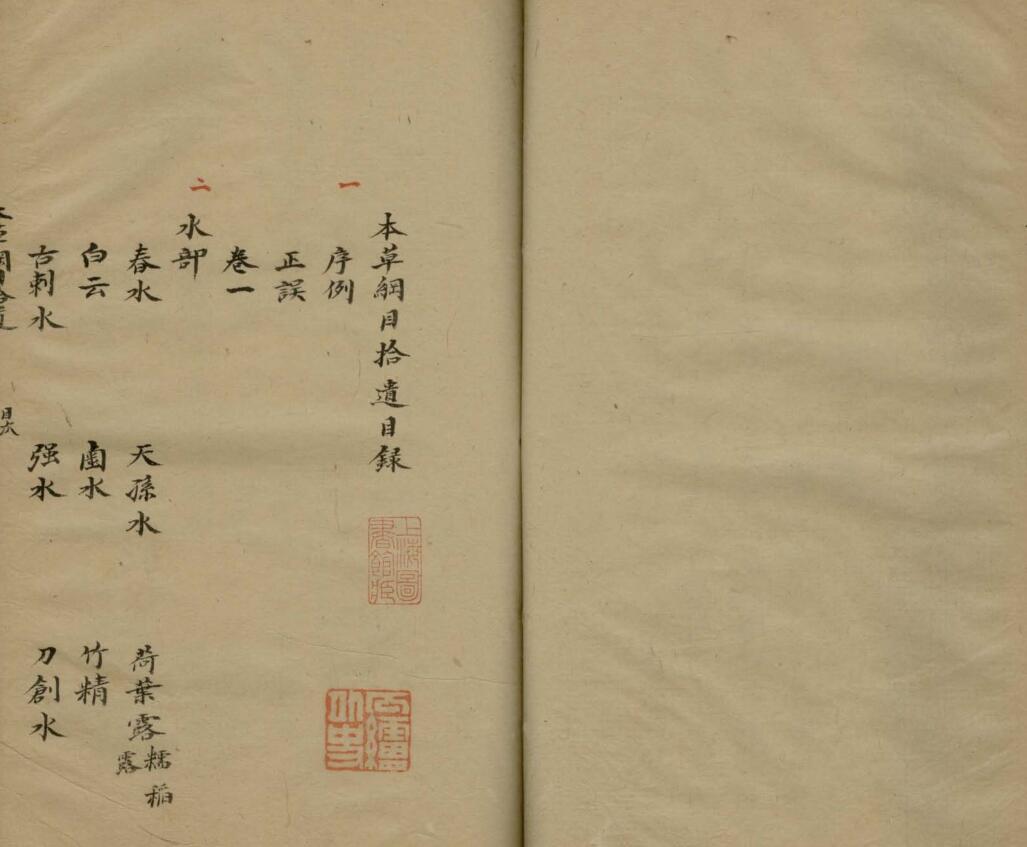 一
本草綱目拾遺目録
上海圖書館藏
序例
正誤
卷一
二
水部
春水
天孫水
荷葉露 糯稻露
白云
鹵水
竹精
古剌水
强水
刀創水
本草綱目拾遺
目六